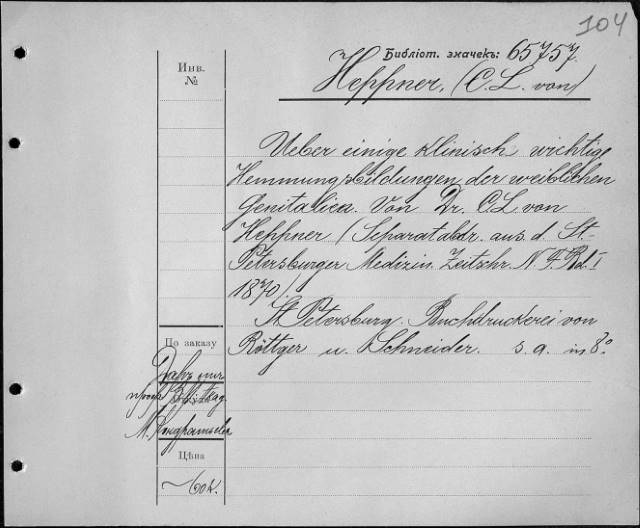 104
Библіот. значекъ: 65757.
Инв.
№
Heppner, (C. L. von)
Ueber einige klinisch wichtige
Hemmungsbildungen der weiblichen
Genitalica. Von Dr. C. L. von
Heppner (Separatabdr. aus. d. St.
Petersburger Medizin. Zeitschr. N. F. Bd. I
1870.)
St. Petersburg. Buchdruckerei von
Röttger u. Schneider. s. a. in 8.°
По заказу
Даръ
М.
Цѣна
~60к.